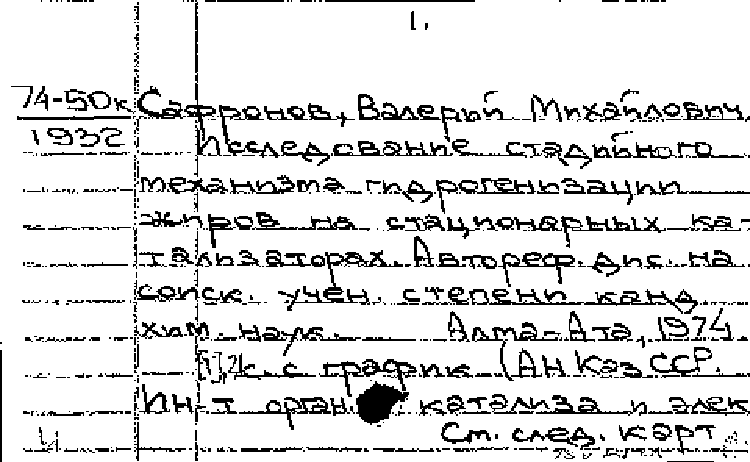 1.
74-50к Сафронов, Валерий Михайлович.
1932 Исследование стадийного
механизма гидрогенизации
жиров на стационарных ка-
тализаторах. Автореф. дис. на
соиск. учен. степени канд.
хим. наук. Алма-Ата, 1974.
с график (АН КазССР.
Ин-т орган. катализа и элек
См. след. карт